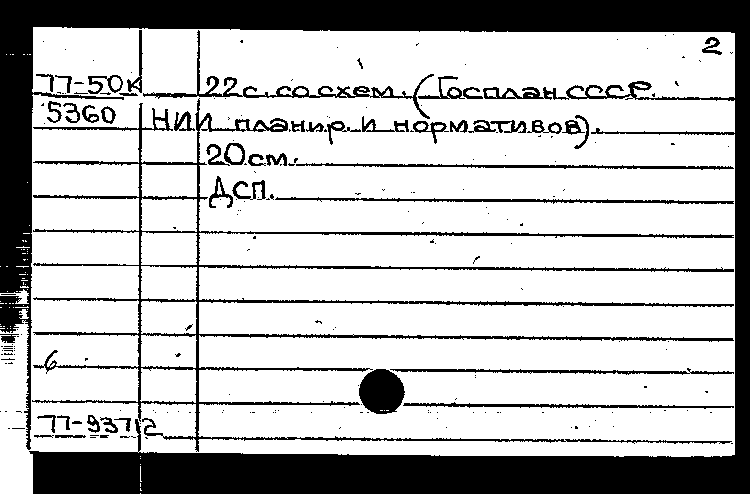 2
77-50к 22с. со схем. (Госплан СССР.
5360 НИИ планир. и нормативов).
20см.
ДСП.
6
77-93712